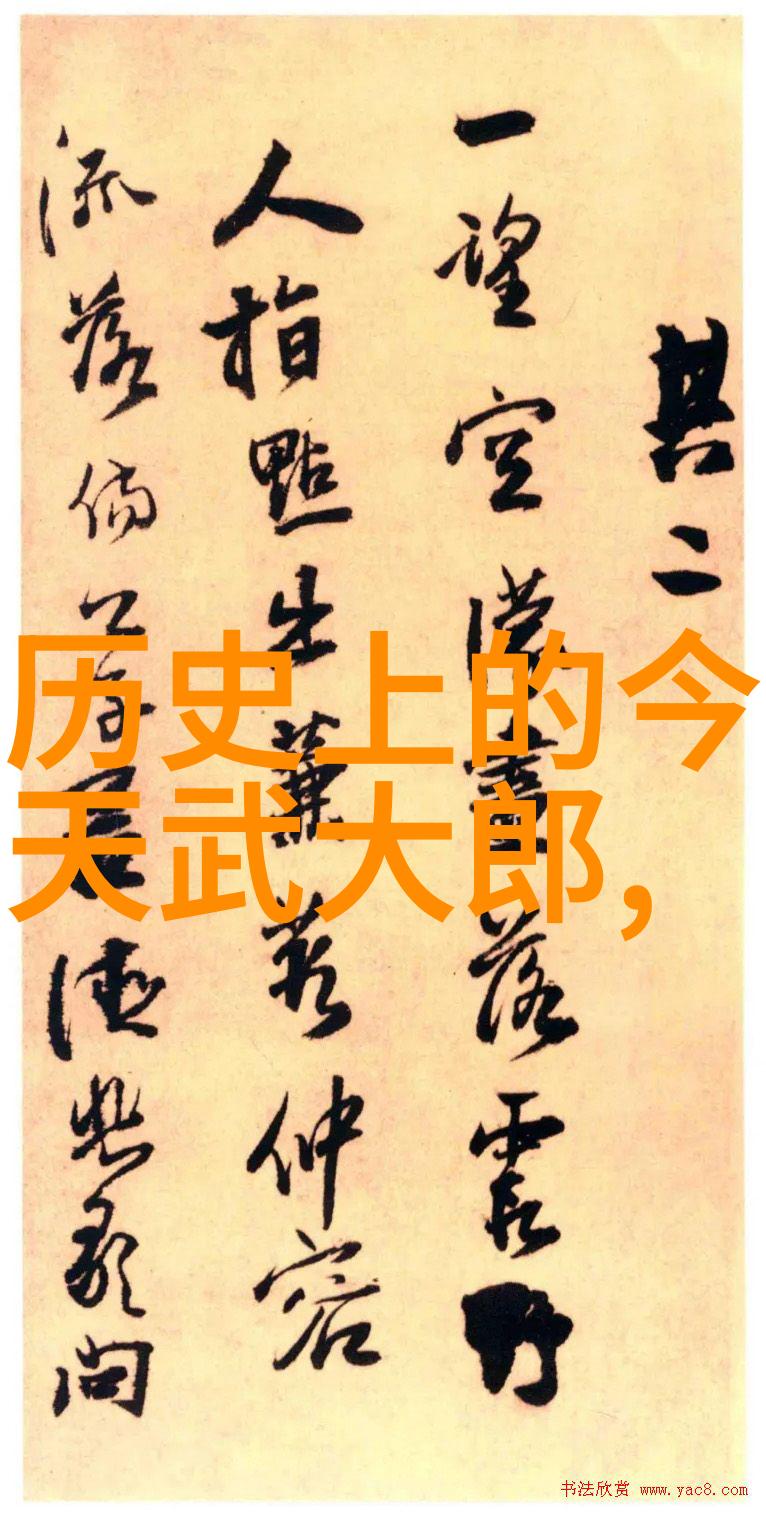 其二
一望空濛盡落霞野
人指點生叢薄仲容
流落傷
德點
問
历史上的今
天武大郎，
书法欣赏 www.yac8.com